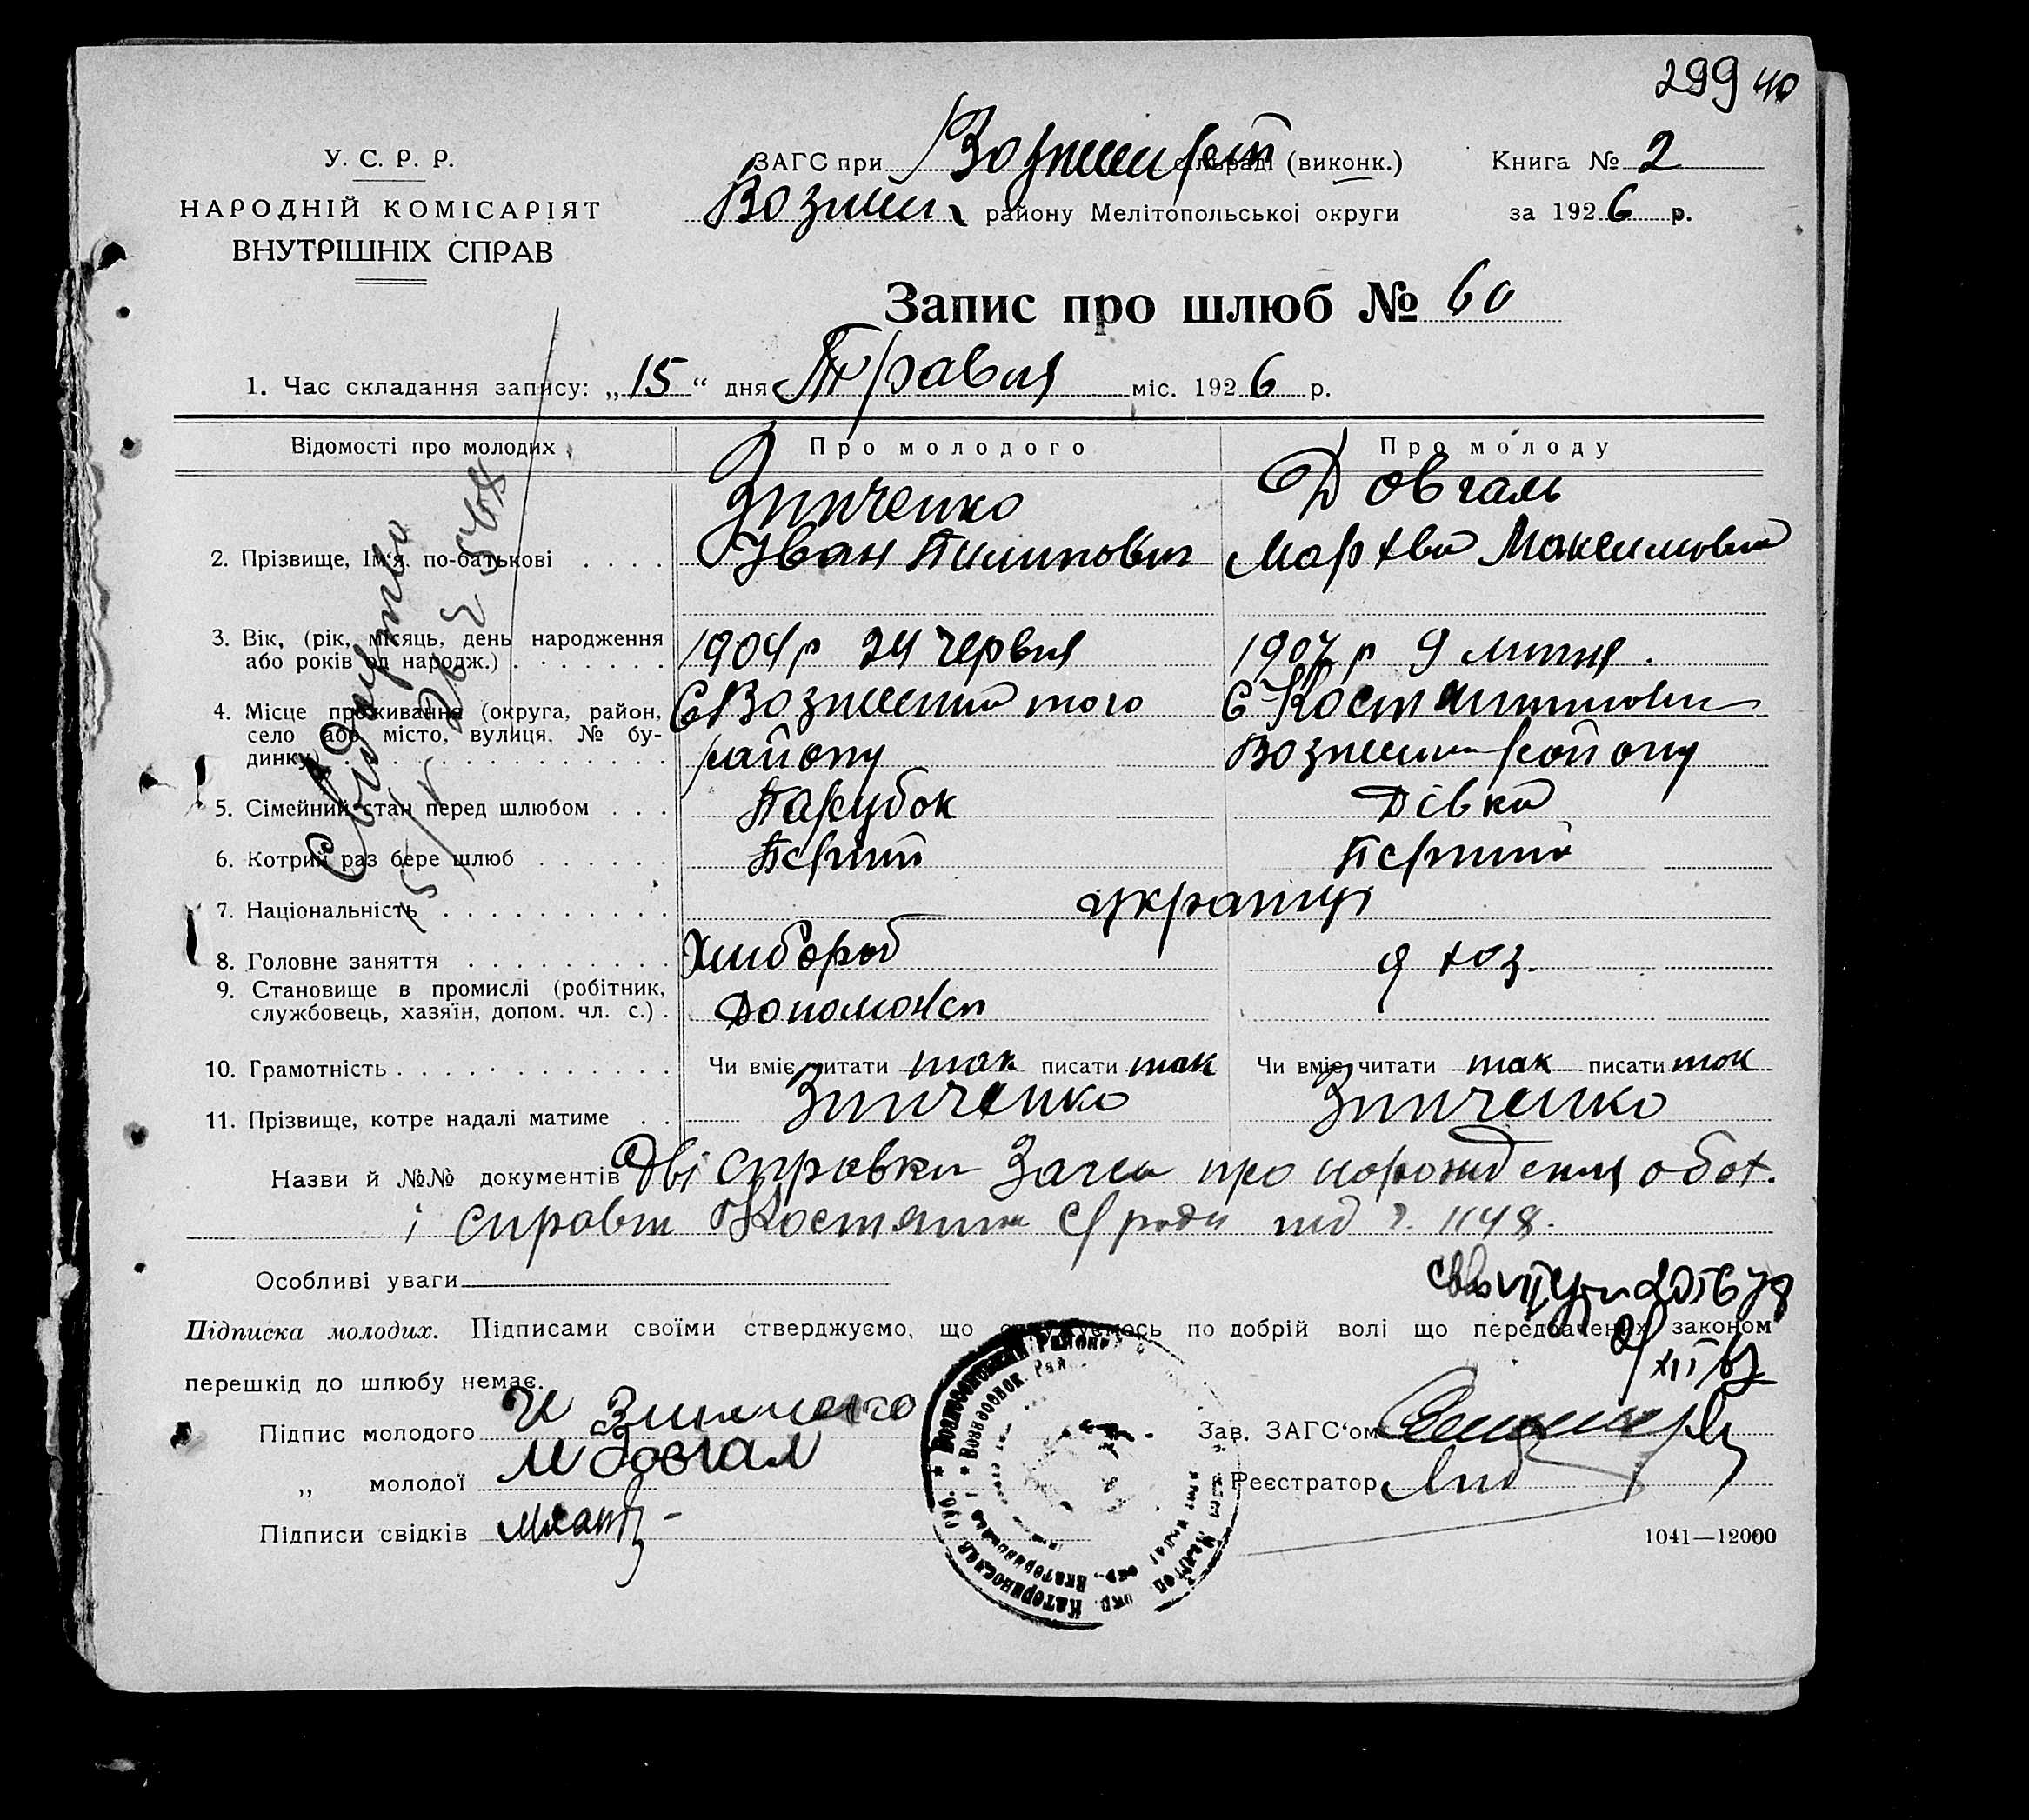 299 40
У. С. Р. Р.
НАРОДНІЙ КОМІСАРІЯТ
ВНУТРІШНІХ СПРАВ
ЗАГС при сільраді (виконк.) Книга № 2
району Мелітопольської округи за 1926 р.
Запис про шлюб № 60
1. Час складання запису: „15“ дня Травня міс. 1926 р.
Відомості про молодих Про молодого Про молоду
Зинченко Довгаль
2. Прізвище, Ім'я. по-батькові . . . . Іван Пилипович Марфа Максимовна
3. Вік, (рік, місяць, день народження
або років од народж.) . . . . . . . 1904 р 24 червня 1907 р 9 липня.
4. Місце проживання (округа, район,
село або місто, вулиця. № бу-
динку)
с Вознесенка того с Костянтиновки
району району
5. Сімейний стан перед шлюбом . . . Парубок Дівка
6. Котрий раз бере шлюб . . . . . . Перший Перший
7. Національність . . . . . . . . . . українці
8. Головне заняття . . . . . . . . . Хлибороб д хоз.
9. Становище в промислі (робітник,
службовець, хазяїн, допом. чл. с.) .
10. Грамотність . . . . . . . . . . . . Чи вміє читати так писати так Чи вміє читати так писати так
11. Прізвище, котре надалі матиме . . Зинченко Зинченко
Назви й №№ документів Дві справки Загса про народження обох.
і 1148.
Особливі уваги
Підписка молодих. Підписами своїми стверджуємо, що одружуємось по добрій волі що передбачених законом
перешкід до шлюбу немає.
Підпис молодого И Зинченко Зав. ЗАГС'ом
„ молодої М Довгал Реєстратор
Підписи свідків
1041—12000